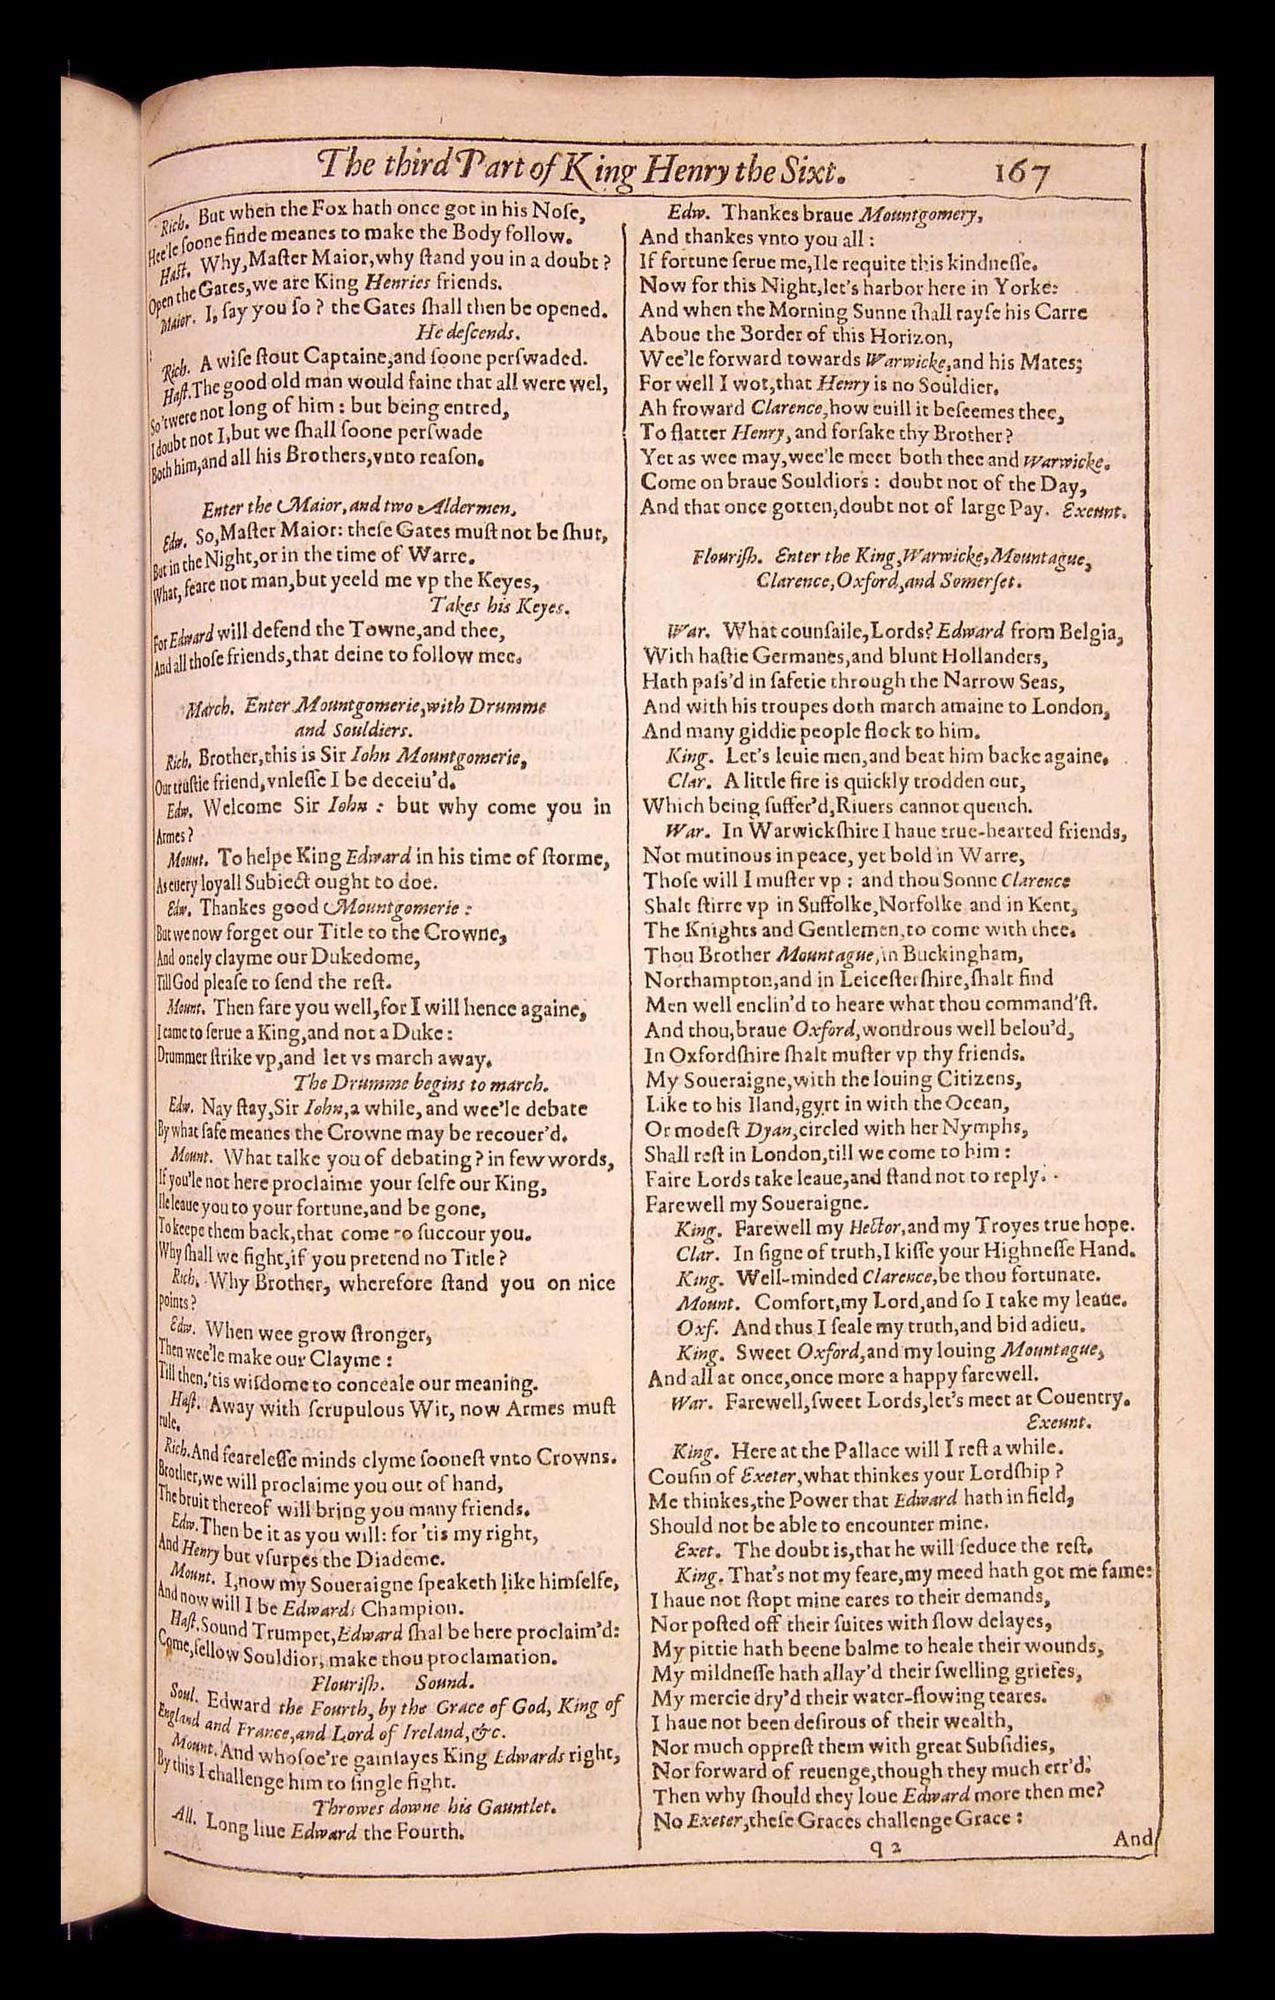 The third Part of King Henry the Sixt. 167
Rich. But when the Fox hath once got in his Nose,
Hee'le soone finde meanes to make the Body follow.
Hast. Why,Master Maior,why stand you in a doubt?
Open the Gates,we are King Henries friends.
Maior. I, say you so? the Gates shall then be opened.
He descends.
Rich. A wise stout Captaine,and soone perswaded.
Hast.The good old man would faine that all were wel,
So 'twere not long of him: but being entred,
I doubt not I,but we shall soone perswade
Both him,and all his Brothers,vnto reason.
Enter the Maior,and two Aldermen.
Edw. So,Master Maior: these Gates must not be shut,
But in the Night,or in the time of Warre.
What, feare not man,but yeeld me vp the Keyes,
Takes his Keyes.
For Edward will defend the Towne,and thee,
And all those friends,that deine to follow mee.
March. Enter Mountgomerie,with Drumme
and Souldiers.
Rich. Brother,this is Sir Iohn Mountgomerie,
Our trustie friend,vnlesse I be deceiu'd.
Edw. Welcome Sir Iohn: but why come you in
Armes?
Mount. To helpe King Edward in his time of storme,
As euery loyall Subiect ought to doe.
Edw. Thankes good Mountgomerie:
But we now forget our Title to the Crowne,
And onely clayme our Dukedome,
Till God please to send the rest.
Mount. Then fare you well,for I will hence againe,
I came to serue a King,and not a Duke:
Drummer strike vp,and let vs march away.
The Drumme begins to march.
Edw. Nay stay,Sir Iohn,a while,and wee'le debate
By what safe meanes the Crowne may be recouer'd.
Mount. What talke you of debating? in few words,
If you'le not here proclaime your selfe our King,
Ile leaue you to your fortune,and be gone,
To keepe them back,that come to succour you.
Why shall we fight,if you pretend no Title?
Rich. Why Brother, wherefore stand you on nice
points?
Edw. When wee grow stronger,
Then wee'le make our Clayme:
Till then,'tis wisdome to conceale our meaning.
Hast. Away with scrupulous Wit, now Armes must
rule.
Rich.And fearelesse minds clyme soonest vnto Crowns.
Brother,we will proclaime you out of hand,
The bruit thereof will bring you many friends.
Edw.Then be it as you will: for 'tis my right,
And Henry but vsurpes the Diademe.
Mount. I,now my Soueraigne speaketh like himselfe,
And now will I be Edwards Champion.
Hast.Sound Trumpet,Edward shal be here proclaim'd:
Come,fellow Souldior, make thou proclamation.
Flourish. Sound.
Soul. Edward the Fourth, by the Grace of God, King of
England and France,and Lord of Ireland,&c.
Mount.And whosoe're gainsayes King Edwards right,
By this I challenge him to single fight.
Throwes downe his Gauntlet.
All. Long liue Edward the Fourth.
Edw. Thankes braue Mountgomery,
And thankes vnto you all:
If fortune serue me,Ile requite this kindnesse.
Now for this Night,let's harbor here in Yorke:
And when the Morning Sunne shall rayse his Carre
Aboue the Border of this Horizon,
Wee'le forward towards Warwicke,and his Mates;
For well I wot,that Henry is no Souldier.
Ah froward Clarence,how euill it beseemes thee,
To flatter Henry, and forsake thy Brother?
Yet as wee may,wee'le meet both thee and Warwicke.
Come on braue Souldiors: doubt not of the Day,
And that once gotten,doubt not of large Pay. Exeunt.
Flourish. Enter the King,Warwicke,Mountague,
Clarence,Oxford,and Somerset.
War. What counsaile,Lords? Edward from Belgia,
With hastie Germanes,and blunt Hollanders,
Hath pass'd in safetie through the Narrow Seas,
And with his troupes doth march amaine to London,
And many giddie people flock to him.
King. Let's leuie men,and beat him backe againe.
Clar. A little fire is quickly trodden out,
Which being suffer'd,Riuers cannot quench.
War. In Warwickshire I haue true-hearted friends,
Not mutinous in peace, yet bold in Warre,
Those will I muster vp: and thou Sonne Clarence
Shalt stirre vp in Suffolke,Norfolke and in Kent,
The Knights and Gentlemen,to come with thee.
Thou Brother Mountague,in Buckingham,
Northampton,and in Leicestershire,shalt find
Men well enclin'd to heare what thou command'st.
And thou,braue Oxford,wondrous well belou'd,
In Oxfordshire shalt muster vp thy friends.
My Soueraigne,with the louing Citizens,
Like to his Iland,gyrt in with the Ocean,
Or modest Dyan,circled with her Nymphs,
Shall rest in London,till we come to him:
Faire Lords take leaue,and stand not to reply.
Farewell my Soueraigne.
King. Farewell my Hector,and my Troyes true hope.
Clar. In signe of truth,I kisse your Highnesse Hand.
King. Well-minded Clarence,be thou fortunate.
Mount. Comfort,my Lord,and so I take my leaue.
Oxf. And thus I seale my truth,and bid adieu.
King. Sweet Oxford,and my louing Mountague,
And all at once,once more a happy farewell.
War. Farewell,sweet Lords,let's meet at Couentry.
Exeunt.
King. Here at the Pallace will I rest a while.
Cousin of Exeter,what thinkes your Lordship?
Me thinkes,the Power that Edward hath in field,
Should not be able to encounter mine.
Exet. The doubt is,that he will seduce the rest.
King. That's not my feare,my meed hath got me fame:
I haue not stopt mine eares to their demands,
Nor posted off their suites with slow delayes,
My pittie hath beene balme to heale their wounds,
My mildnesse hath allay'd their swelling griefes,
My mercie dry'd their water-flowing teares.
I haue not been desirous of their wealth,
Nor much opprest them with great Subsidies,
Nor forward of reuenge,though they much err'd.
Then why should they loue Edward more then me?
No Exeter,these Graces challenge Grace:
q 2 And